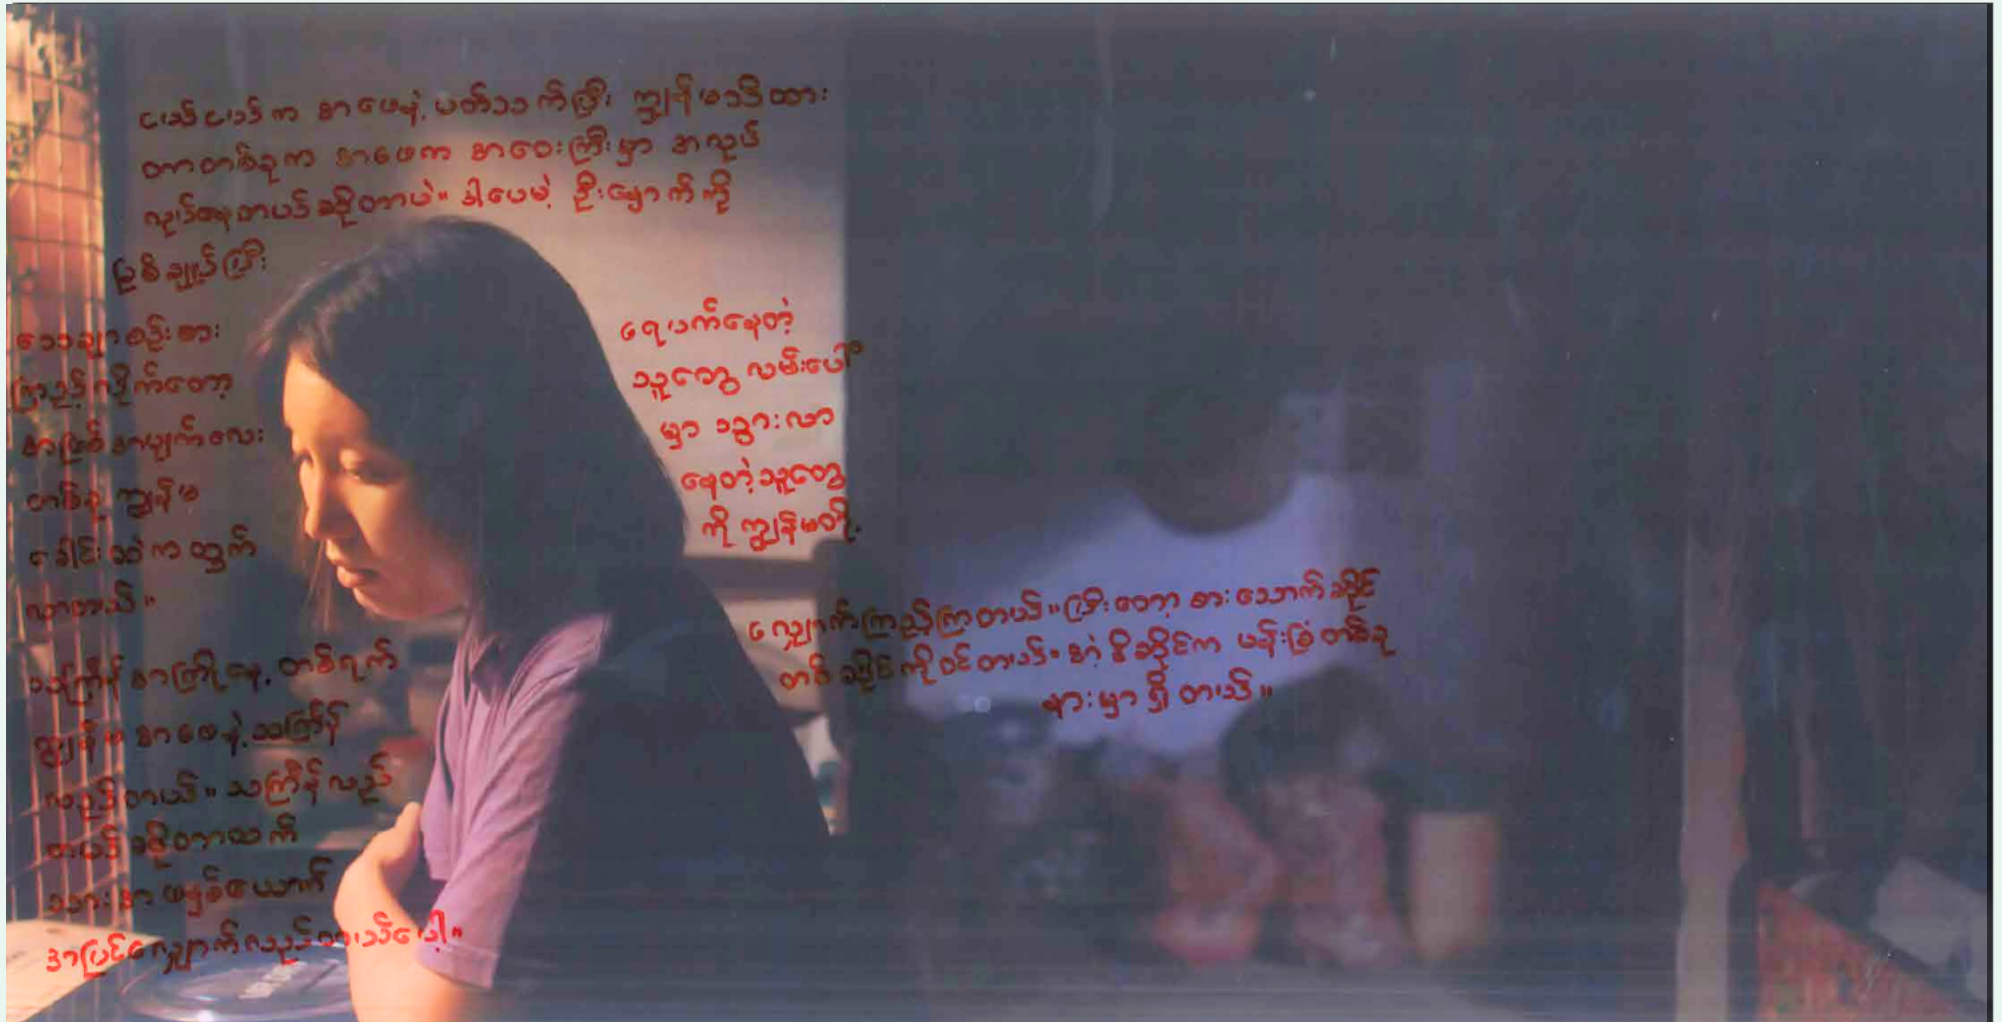 ငယ်ငယ်က အဖေနဲ့ ပတ်သက်ပြီး ကျွန်မသိထား
တာတစ်ခုက အဖေက အဝေးကြီးမှာ အလုပ်
လုပ်နေတယ်ဆိုတာပဲ။ ဒါပေမဲ့ ဦးနှောက်ကို
ဖြစ်ချုပ်ပြီး
သေချာစဉ်းစား
ကြည့်လိုက်တော့
အဖြစ်အပျက်လေး
တစ်ခု ကျွန်မ
ခေါင်းထဲက ထွက်
လာတယ်။
သင်္ကြန်အကြိုနေ့ တစ်ရက်
ကျွန်မ အဖေနဲ့ သင်္ကြန်
လည်တယ်။ သင်္ကြန်လည်
တယ်ဆိုတာထက်
သားအဖနှစ်ယောက်
အပြင်လျှောက်လည်တယ်ပေါ့။
ရေပက်နေတဲ့
သူတွေ လမ်းပေါ်
မှာ သွားလာ
နေတဲ့သူတွေ
ကို ကျွန်မတို့
လျှောက်ကြည့်ကြတယ်။ ပြီးတော့ စားသောက်ဆိုင်
တစ်ဆိုင်ကိုဝင်တယ်။ အဲ့ဒီဆိုင်က ပန်းခြံတစ်ခု
နားမှာရှိတယ်။